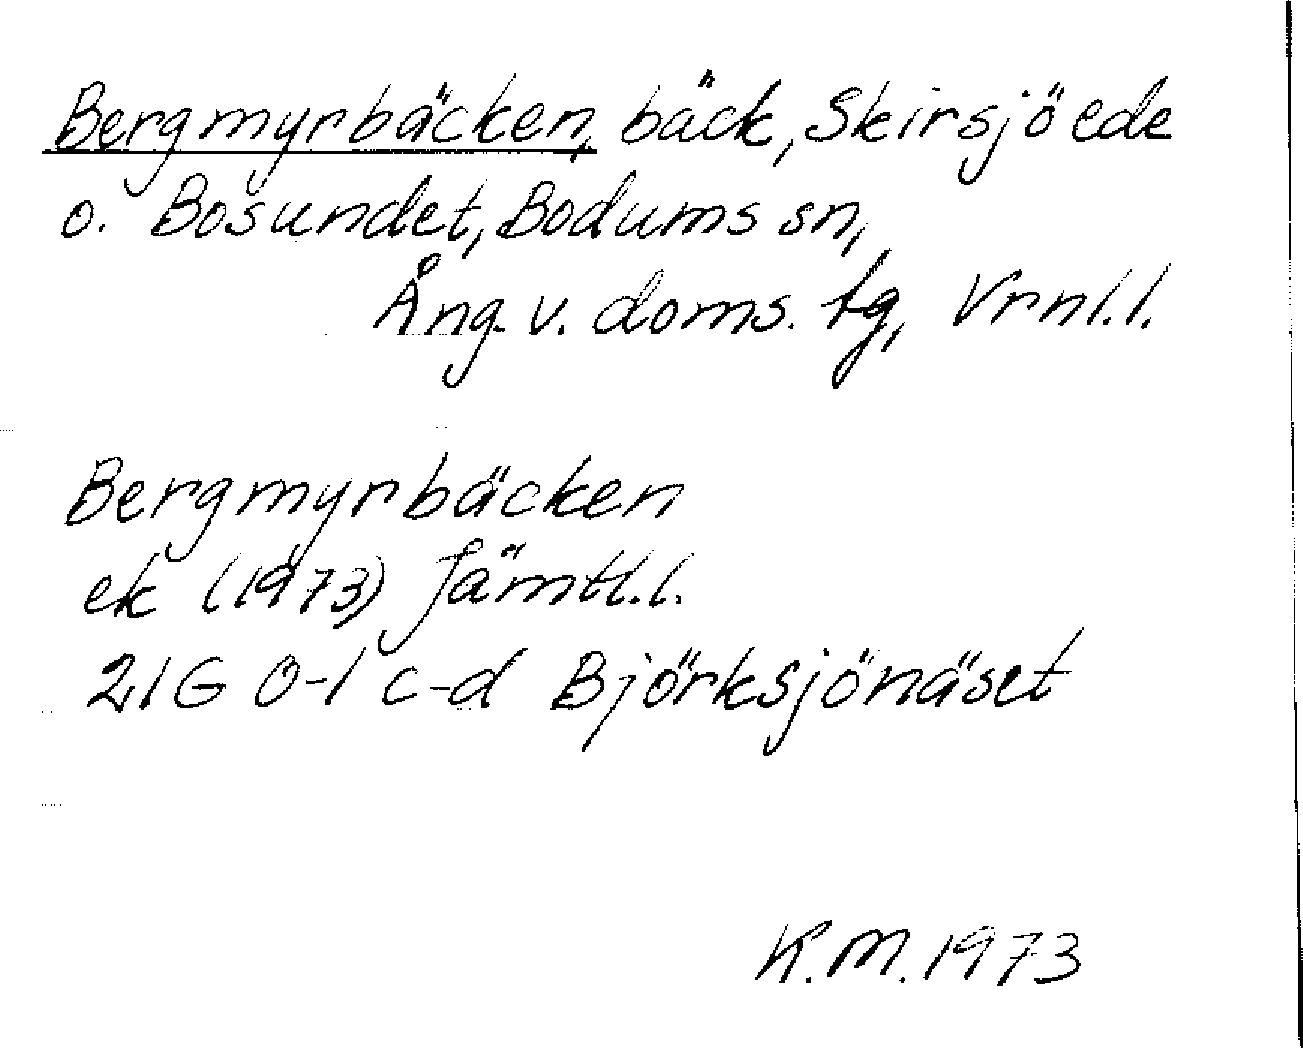 Bergmyrbäcken, bäck, Skirsjöede
o. Bosundet, Bodums sn,
Ång. v. doms. tg, Vrnl.l.
Bergmyrbäcken
ek (1973) Jämtl.l.
21G 0-1 c-d Björksjönäset
K.M. 1973